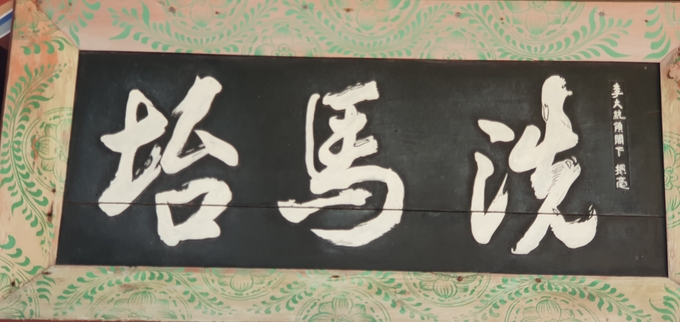 李大統領閣下 揮毫
洗馬坮